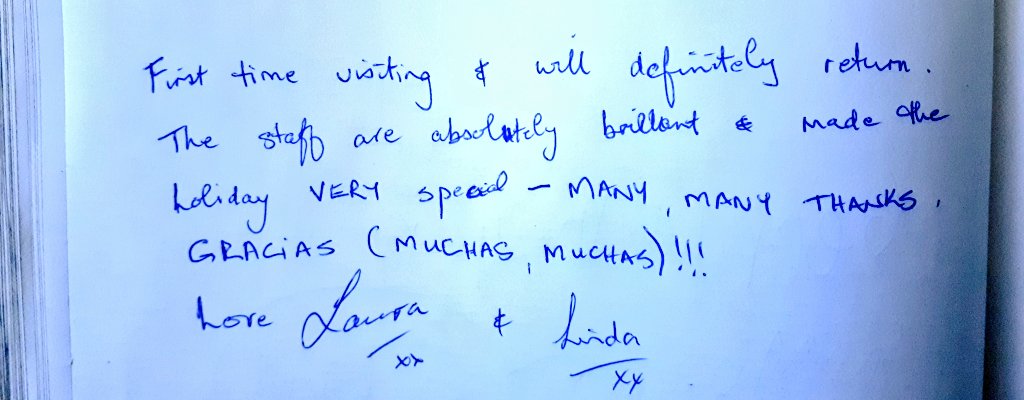 First time visiting & will definitely return.
The staff are absolutely brillant & made the
holiday VERY special - MANY, MANY THANKS.
GRACIAS (MUCHAS, MUCHAS)!!!
Love Laura & Linda
xx xx